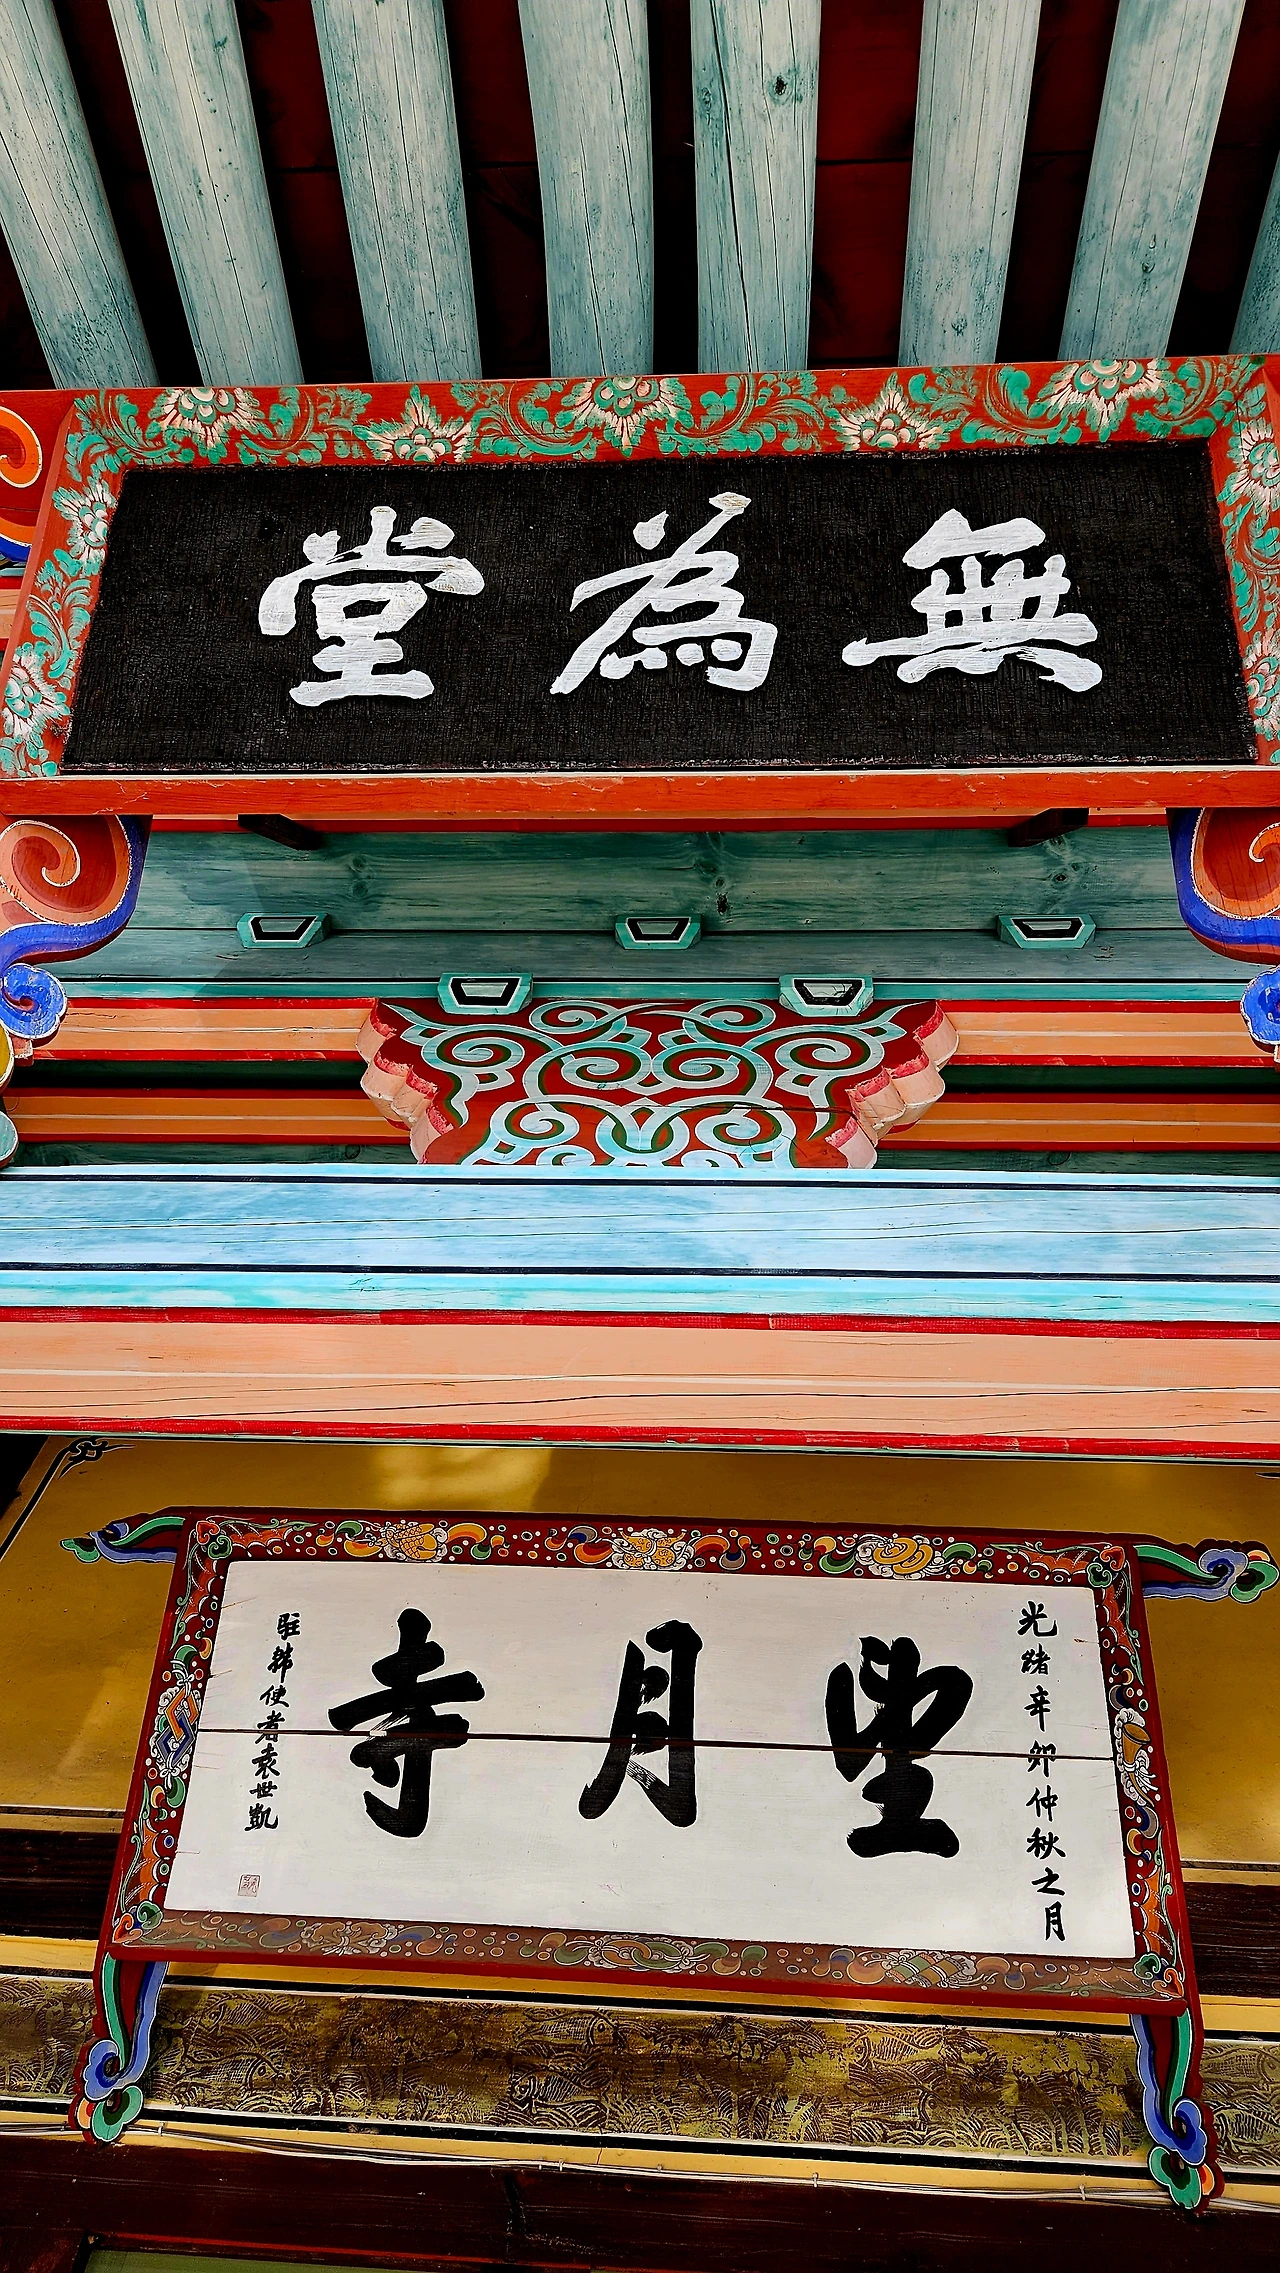 無為堂
光緒辛卯仲秋之月
望月寺
駐韓使者袁世凱